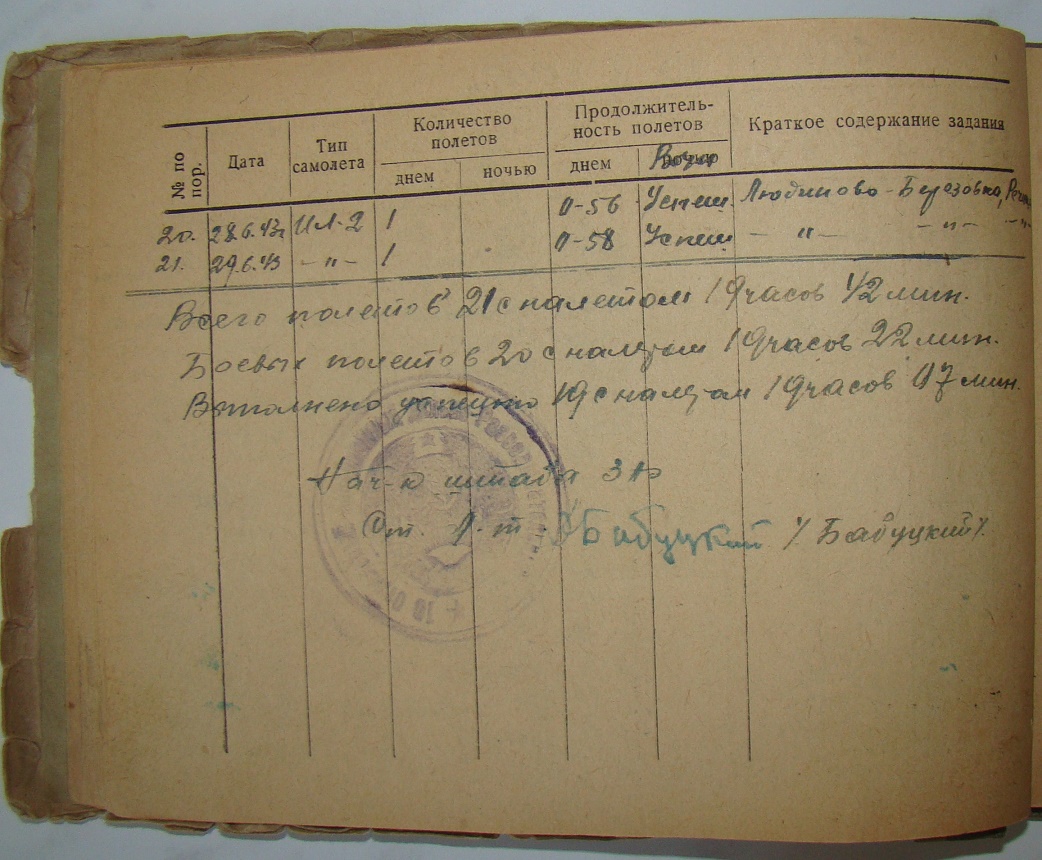 № по пор. Дата Тип самолета Количество полетов Продолжитель-ность полетов Краткое содержание задания
днем ночью днем ночью
20. 28.6.43г ИЛ-2 1 0-56 Успеш. Людиново - Березовка,
21. 29.6.43 -"- 1 0-58 Успеш -"- -"- -"-
Всего полетов 21 с налетом 19 часов 42 мин.
Боевых полетов 20 с налетом 19 часов 22 мин.
Выполнено успешно 19 с налетом 19 часов 07 мин.
Нач-к штаба
Ст. л-т Бабуцкий /Бабуцкий/.